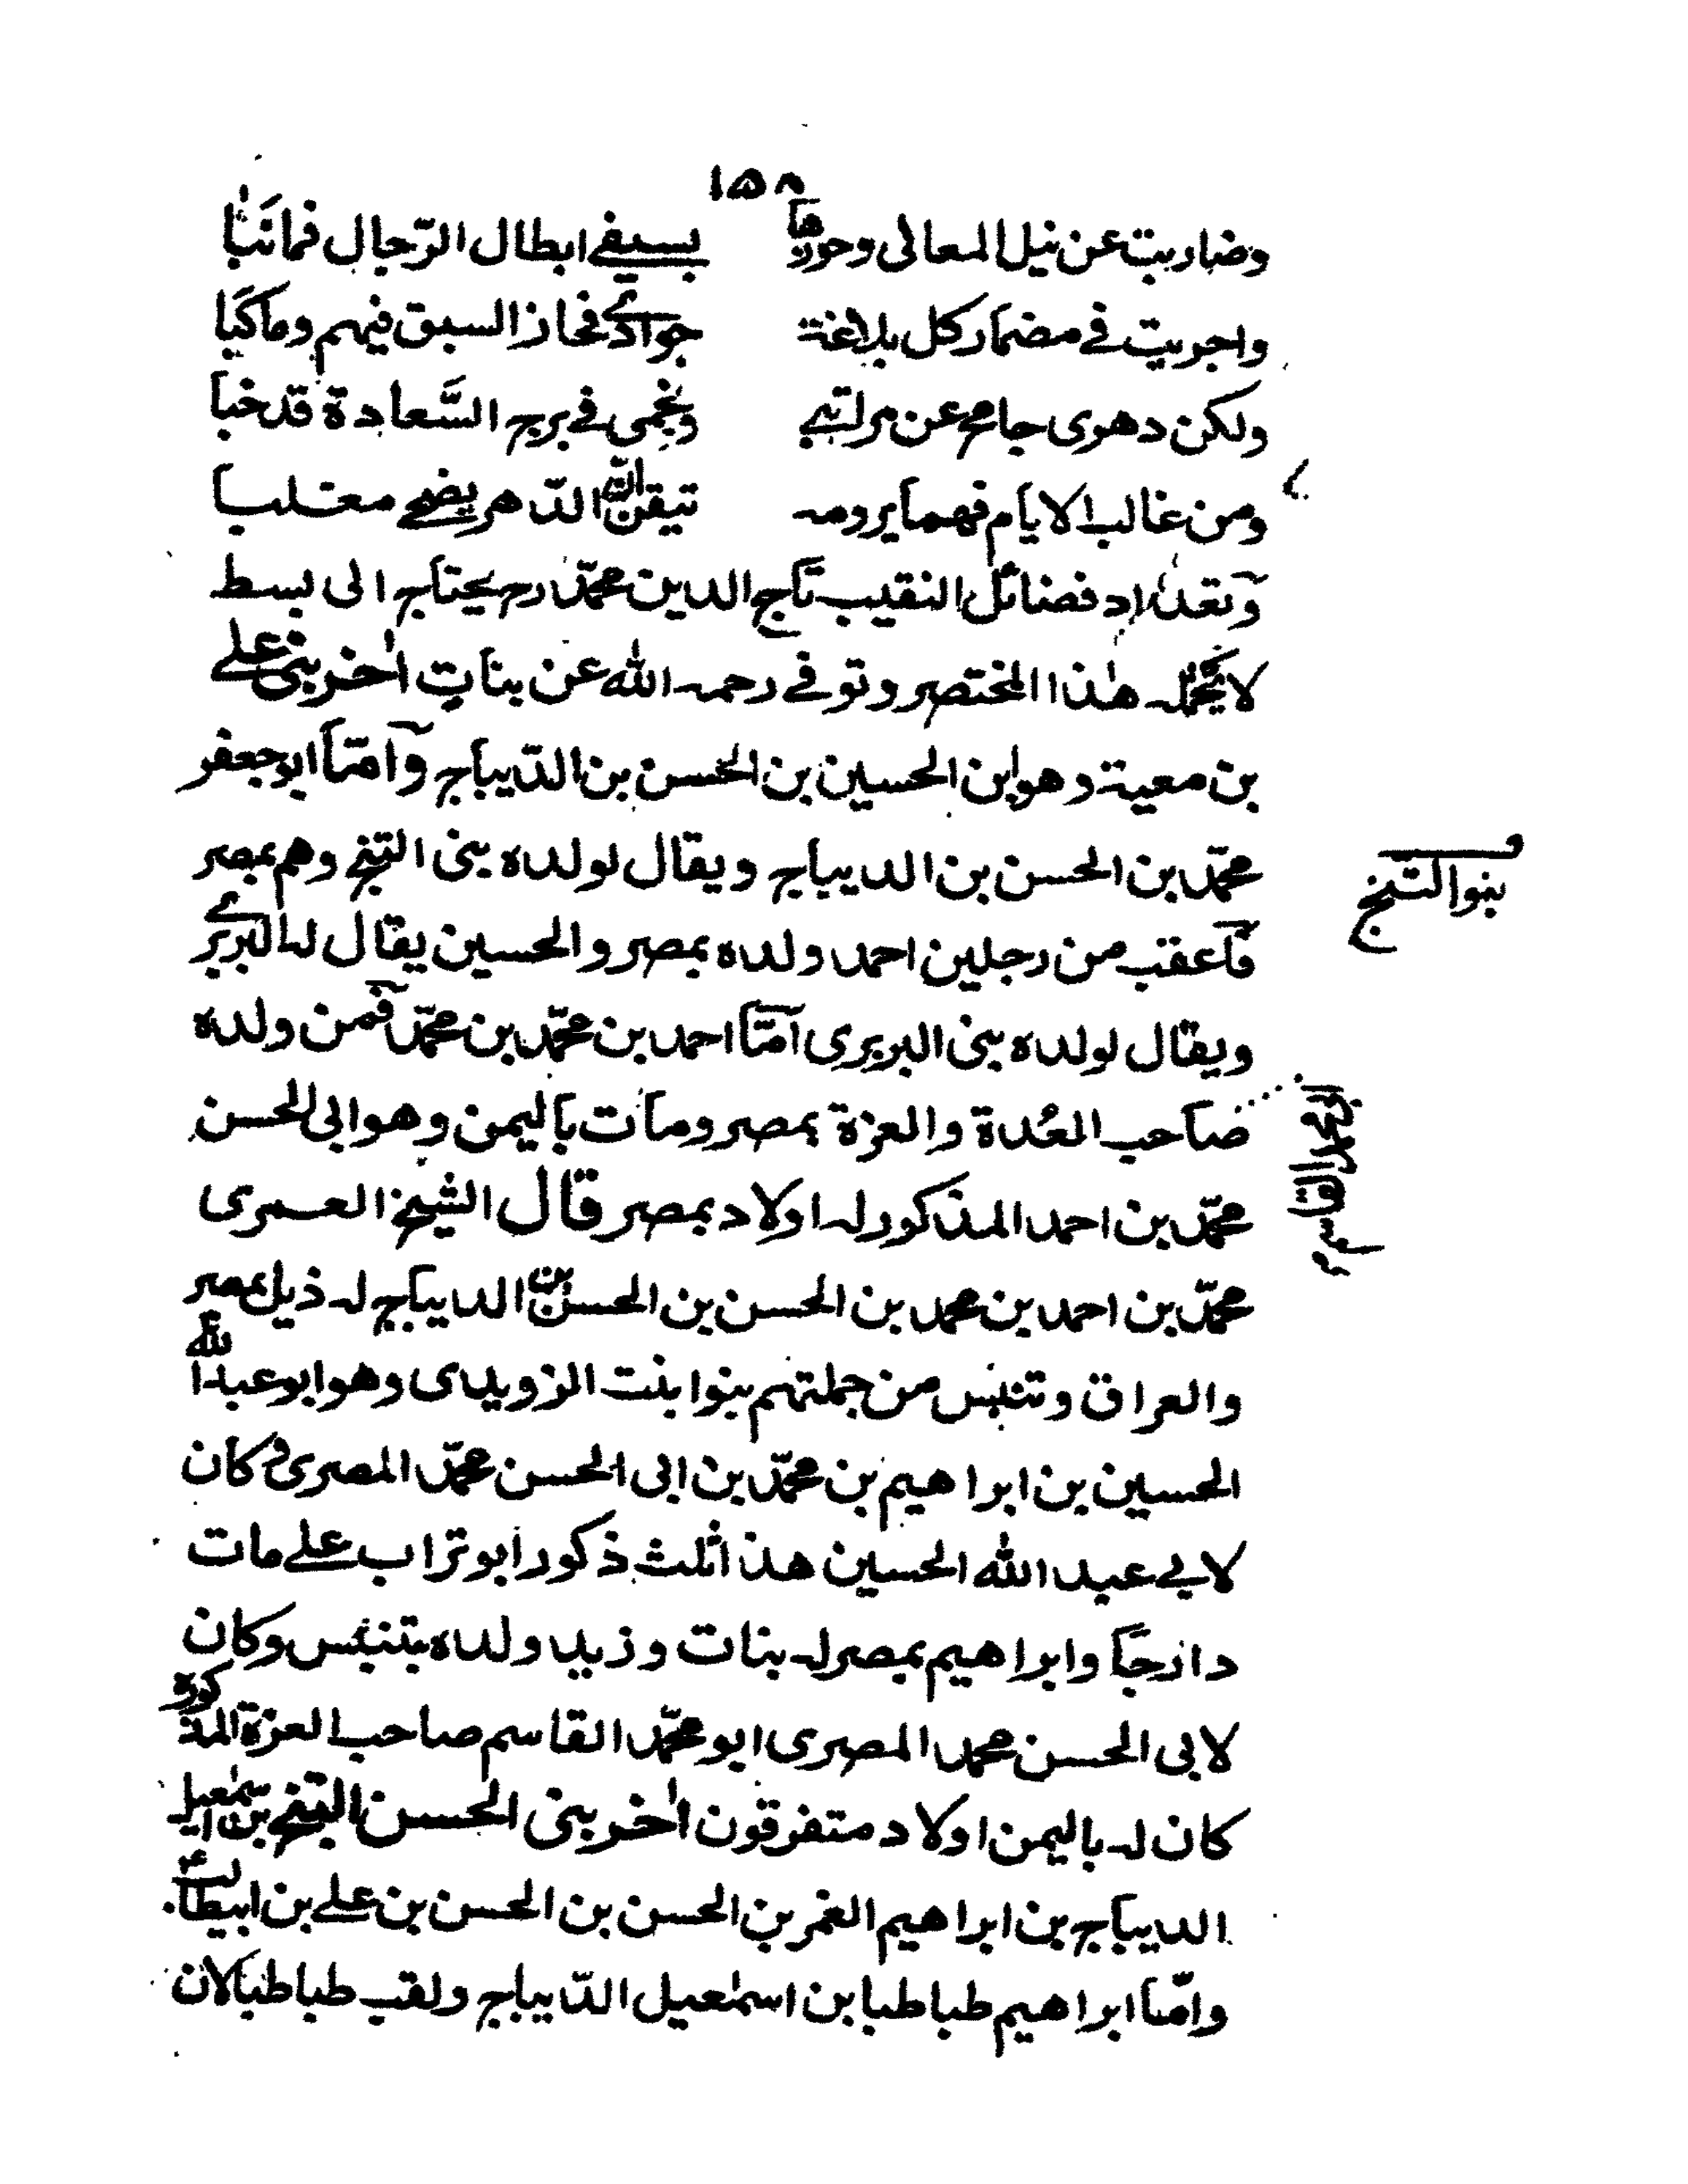 ١٥٨
وضاربت عن نيل المعالى وحوزها بسيفي ابطال الرّجال فما نَبٰا
واجريت في مضمار كل بلاغة جوادي فحاز السبق فيهم وما كَبَا
ولكن دهرى جامح عن مراتبي ونجمى في برج السَّعادة قد خبا
ومن غالب الايام فهما يرومه تيقن انّ الدّهر يضحي مغلبا
وتعداد فضائل النقيب تاج الدين محمّد رح يحتاج الى بسط
لا يحمله هٰذا المختصر وتوفي رحمه الله عن بناتٍ اٰخر بنى علي
بن معية وهو ابن الحسين بن الحسن بن الدّيباج وآمّا ابو جعفر
محمّد بن الحسن بن الديباج ويقال لولده بنى التج وهم بمصر
بنو التج
فآعقب من رجلين احمد ولده بمصر والحسين يقال له البربري
ويقال لولده بنى البربرى آمّا احمد بن محمّد بن محمّد فمن ولده
صاحب العُدة والعزة بمصر ومات باليمن وهو ابى الحسن
ابو محمد القاسم
محمّد بن احمد المذكور له اولاد بمصر قال الشيخ العمرى
محمّد بن احمد بن محمد بن الحسن بن الحسن بن الديباج له ذيل بمصر
والعراق وتنيس من جملتهم بنوا بنت الزويدى وهو ابو عبد الله
الحسين بن ابراهيم بن محمّد بن ابى الحسن محمّد المصرى وكان
لابي عبد الله الحسين هذا ثلث ذكور ابو تراب علي مات
دارجًا وابراهيم بمصر له بنات وزيد ولده بتنيس وكان
لابى الحسن محمد المصرى ابو محمّد القاسم صاحب العزة المذكورة
كان له باليمن اولاد متفرقون اٰخر بنى الحسن التج بن اسمٰعيل
الديباج بن ابراهيم الغمر بن الحسن بن الحسن بن علي بن ابيطالب ع
وامّا ابراهيم طباطبا بن اسمٰعيل الدّيباج ولقب طباطبا لان